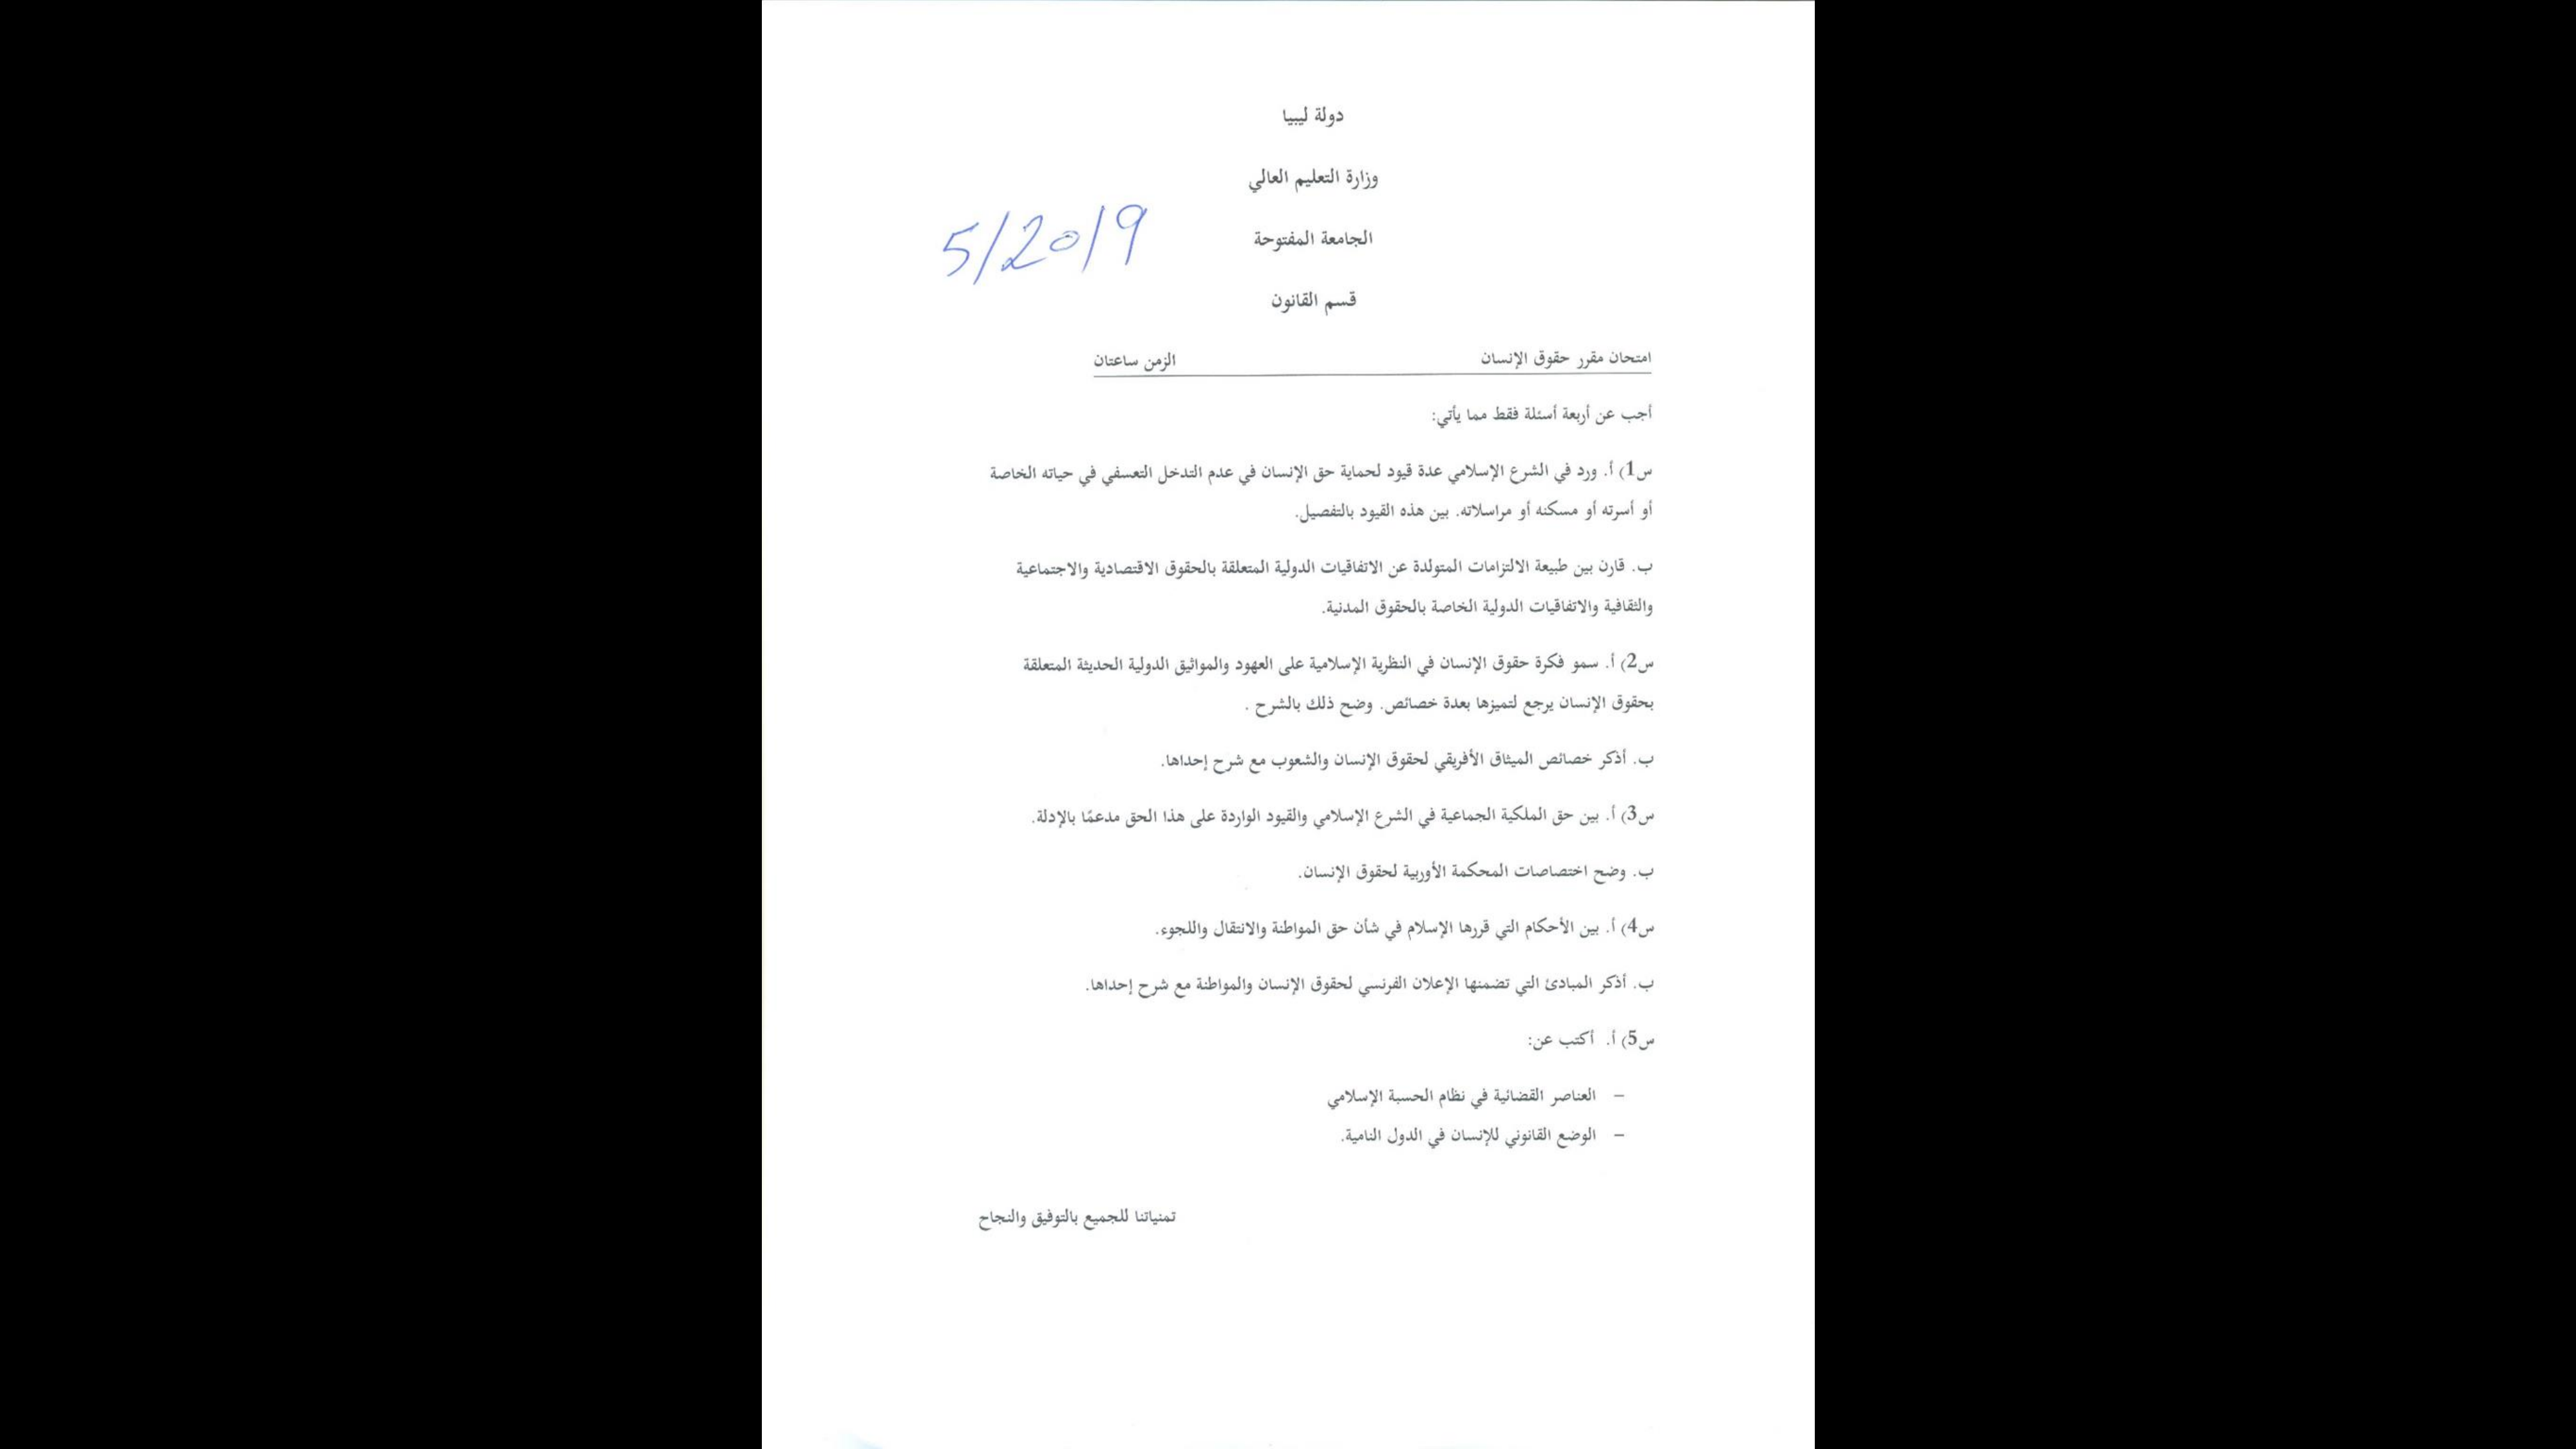 دولة ليبيا
وزارة التعليم العالي
الجامعة المفتوحة
5/2019
قسم القانون
امتحان مقرر حقوق الإنسان الزمن ساعتان
أجب عن أربعة أسئلة فقط مما يأتي:
س1) أ. ورد في الشرع الإسلامي عدة قيود لحماية حق الإنسان في عدم التدخل التعسفي في حياته الخاصة
أو أسرته أو مسكنه أو مراسلاته. بين هذه القيود بالتفصيل.
ب. قارن بين طبيعة الالتزامات المتولدة عن الاتفاقيات الدولية المتعلقة بالحقوق الاقتصادية والاجتماعية
والثقافية والاتفاقيات الدولية الخاصة بالحقوق المدنية.
س2) أ. سمو فكرة حقوق الإنسان في النظرية الإسلامية على العهود والمواثيق الدولية الحديثة المتعلقة
بحقوق الإنسان يرجع لتميزها بعدة خصائص. وضح ذلك بالشرح .
ب. أذكر خصائص الميثاق الأفريقي لحقوق الإنسان والشعوب مع شرح إحداها.
س3) أ. بين حق الملكية الجماعية في الشرع الإسلامي والقيود الواردة على هذا الحق مدعمًا بالإدلة.
ب. وضح اختصاصات المحكمة الأوربية لحقوق الإنسان.
س4) أ. بين الأحكام التي قررها الإسلام في شأن حق المواطنة والانتقال واللجوء.
ب. أذكر المبادئ التي تضمنها الإعلان الفرنسي لحقوق الإنسان والمواطنة مع شرح إحداها.
س5) أ. أكتب عن:
– العناصر القضائية في نظام الحسبة الإسلامي
– الوضع القانوني للإنسان في الدول النامية.
تمنياتنا للجميع بالتوفيق والنجاح